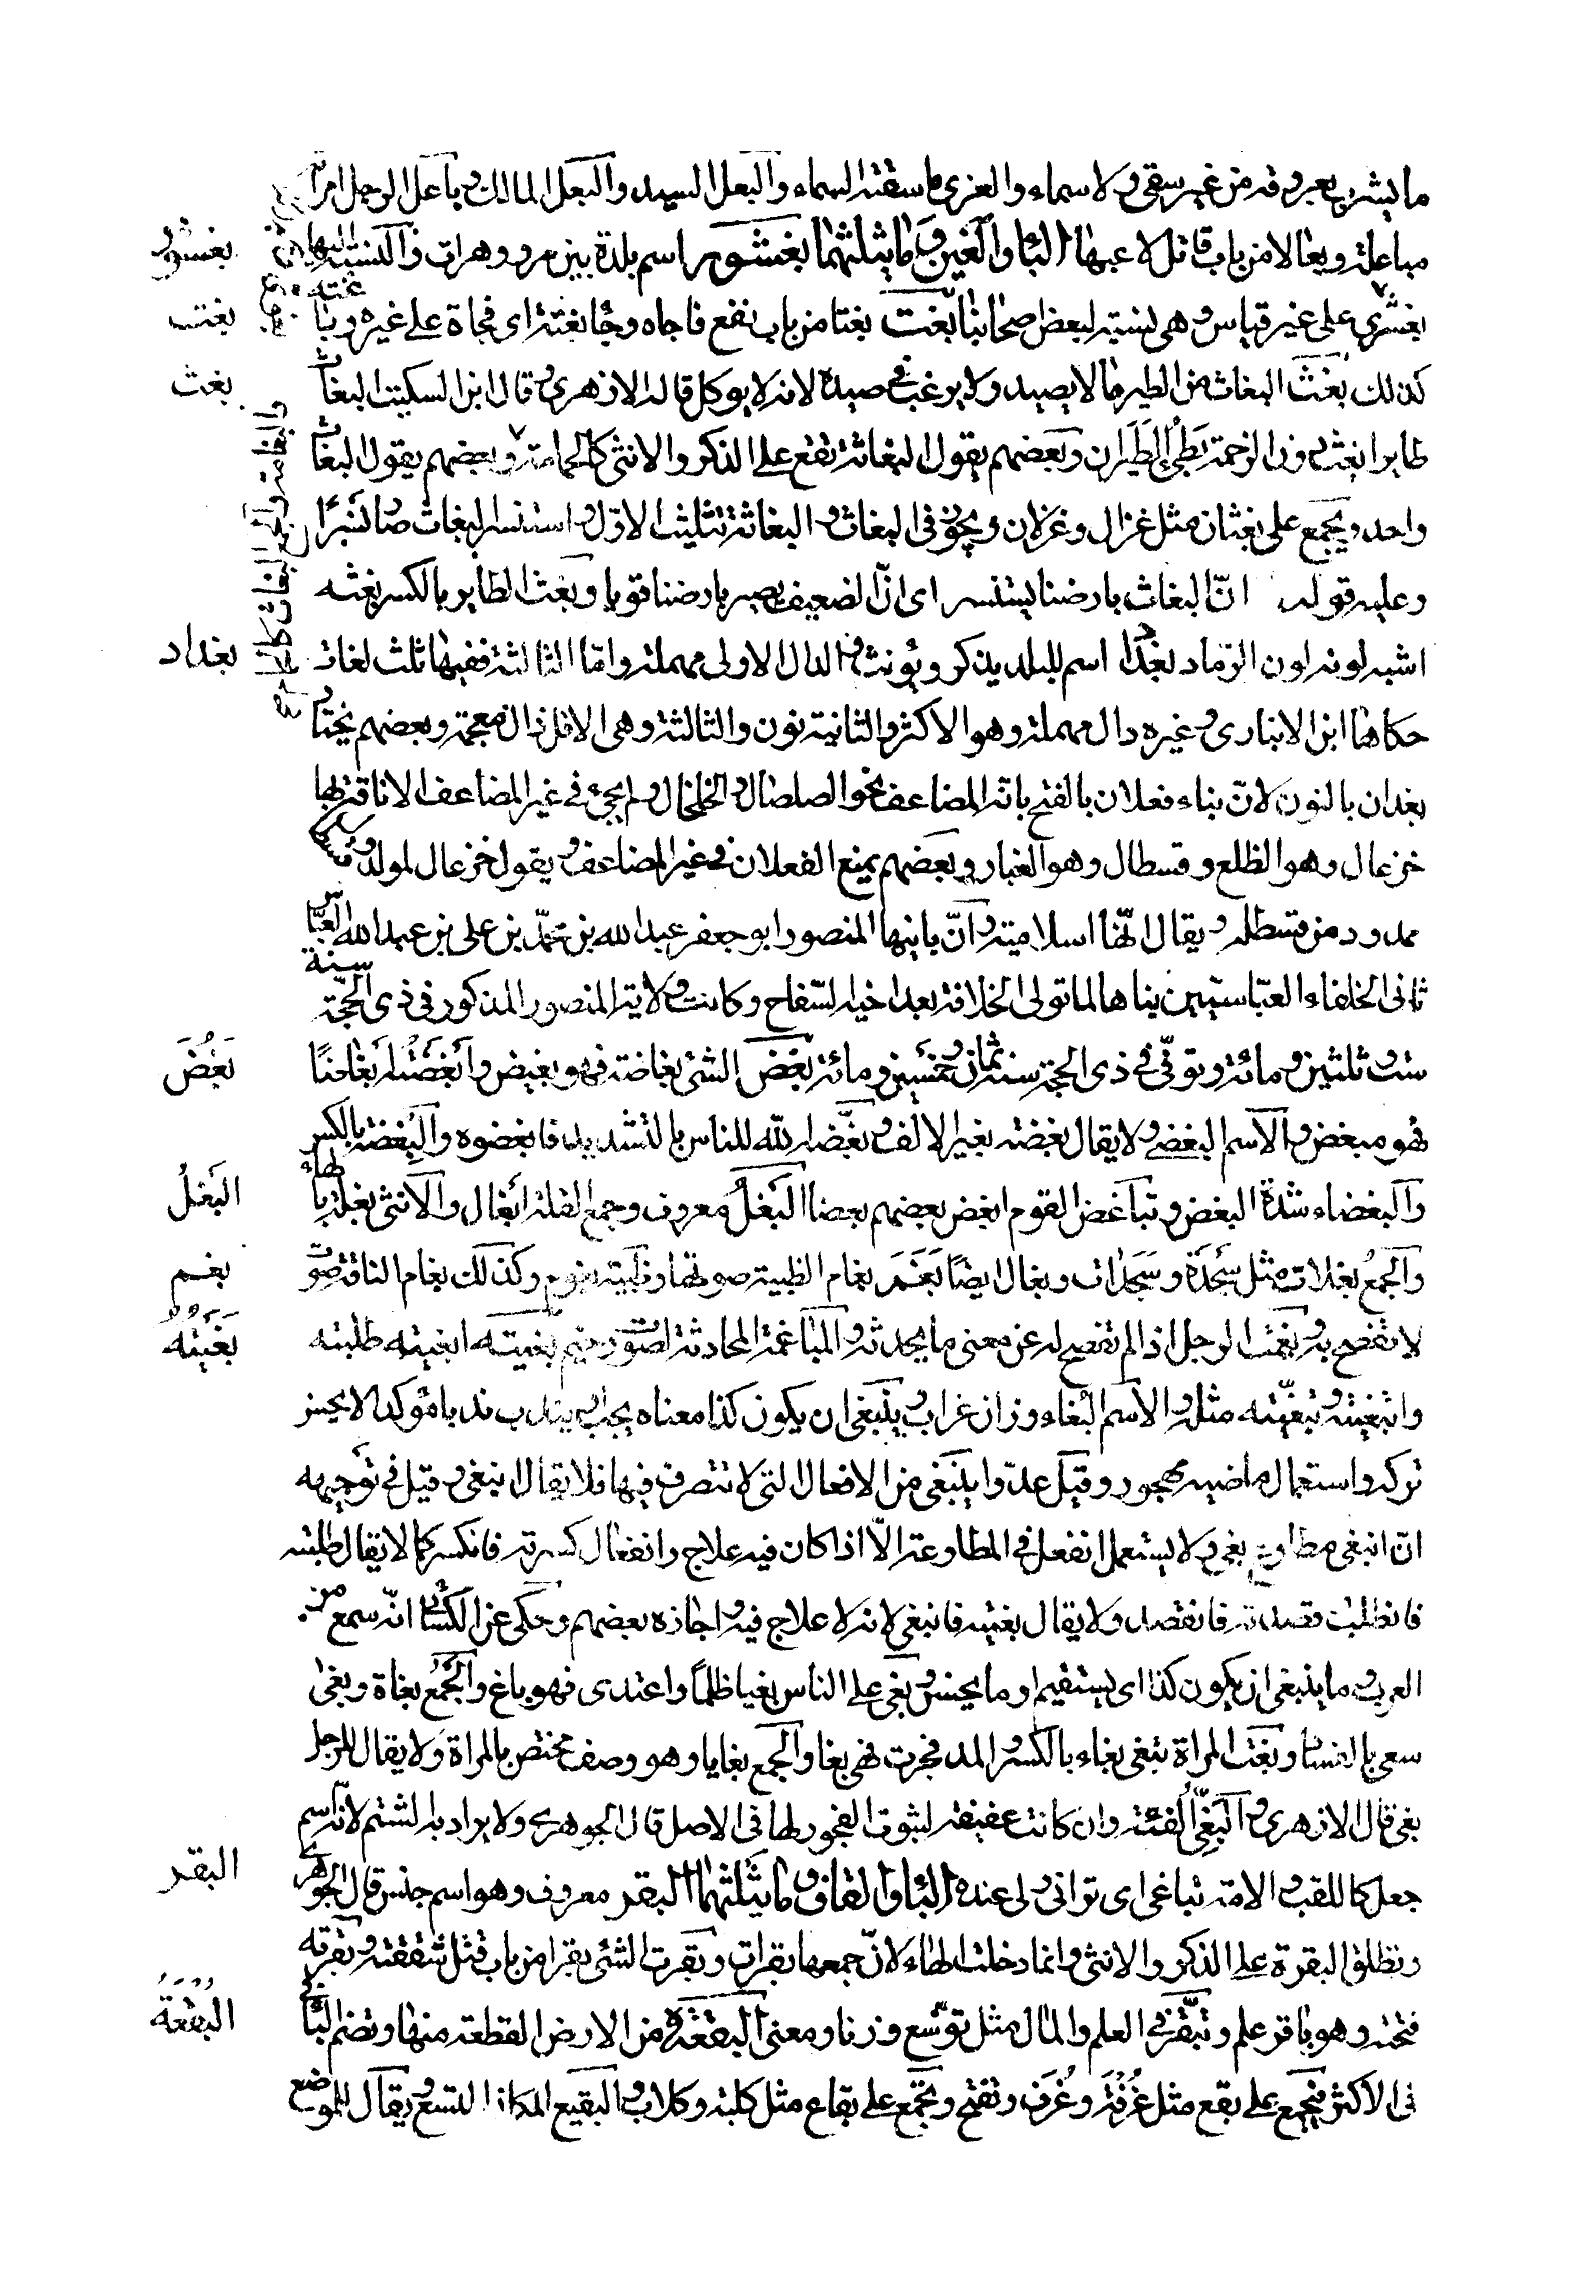 ما يشرب بعروقه من غير سقي ولا سماء والعزى ما سقته السماء والبعل السيد والبعل المالك وباعل الرجل امرأته
مباعلة وبعالا من باب قاتل لاعبها الباء والغين وما يثلثهما بغشور اسم بلدة بين مرو وهراة والنسبة اليها
بغشور
بغشوري على غير قياس وهي نسبة لبعض اصحابنا بغت بغتا من باب نفع فاجاه وجا بغتة اى فجاة على غيره وباغته
بغت
كذلك بغث البغاث من الطير ما لا يصيد ولا يرغب في صيده لانه لا يوكل قاله الازهري وقال ابن السكيت البغاث
بغث
طاير ابغث دون الرخمة بطئ الطيران وبعضهم يقول البغاثة تقع على الذكر والانثى كالحمامة وبعضهم يقول البغاث
والبغاثة والجمع البغاث كالحمام
واحد ويجمع على بغثان مثل غزال وغزلان ويجوز في البغاث والبغاثة تثليث الاول واستنسر البغاث صار نسرا
وعليه قوله ان البغاث بارضنا يستنسر اى ان الضعيف يصير بارضنا قويا وبغث الطاير بالكسر بغثه
اشبه لونه لون الرماد بغداد اسم للبلد يذكر ويؤنث والدال الاولى مهملة واما الثالثة ففيها ثلث لغات
بغداد
حكاها ابن الانبارى وغيره دال مهملة وهو الاكثر والثانية نون والثالثة وهى الاقل ذال معجمة وبعضهم يختار
بغدان بالنون لان بناء فعلان بالفتح بابه المضاعف نحو الصلصال والخلخال ولم يجئ في غير المضاعف الا ناقة بها
خزعال وهو الظلع وقسطال وهو الغبار وبعضهم يمنع الفعلان في غير المضاعف ويقول خزعال مولد وقسطال
ممدود من قسطله ويقال انها اسلامية وان بانيها المنصور ابو جعفر عبدالله بن محمد بن على بن عبدالله العباس
ثانى الخلفاء العباسيين بناها لما تولى الخلافة بعد اخيه السفاح وكانت ولاية المنصور المذكور فى ذى الحجة سنة
ست وثلثين ومائة وتوفى في ذى الحجة سنة ثمان وخمسين ومائة بغض الشئ بغاضة فهو بغيض وابغضته ابغاضا
بغض
فهو مبغض والاسم البغض ولا يقال بغضته بغير الالف وبغضه الله للناس بالتشديد فابغضوه والبغضة بالكسر
والبغضاء شدة البغض وتباغض القوم ابغض بعضهم بعضا البغل معروف وجمع القلة ابغال والانثى بغلة بالهاء
البغل
والجمع بغلات مثل سجدة وسجدات وبغال ايضا بغم بغام الظبية صوتها وظبية بغوم وكذلك بغام الناقة صوت
بغم
لا تفصح به وبغمت الرجل اذا لم تفصح له عن معنى ما يحدثه والمباغمة المحادثة بصوت رخيم بغيته ابغيه طلبته
بغيته
وابتغيته وتبغيته مثله والاسم البغاء وزان غراب وينبغى ان يكون كذا معناه يجب او يندب ندبا مؤكدا لا يحسن
تركه واستعمال ماضيه مهجور وقيل عدوا ينبغى من الافعال التى لا تتصرف فيها فلا يقال انبغى وقيل في توجيهه
ان انبغى مطاوع بغى ولا يستعمل انفعل في المطاوعة الا اذا كان فيه علاج وانفعال كسرته فانكسر كما لا يقال طلبته
فانطلب وقصدته فانقصد ولا يقال بغيته فانبغى لانه لا علاج فيه واجازه بعضهم وحكى عن الكسائى انه سمع من
العرب وما ينبغى ان يكون كذا اى يستقيم او ما يحسن وبغى على الناس بغيا ظلما واعتدى فهو باغ والجمع بغاة وبغى
سعى بالفساد وبغت المراة تبغى بغاء بالكسر والمد فجرت فهى بغا والجمع بغايا وهو وصف مختص بالمراة ولا يقال للرجل
بغى قال الازهرى والبغى القينة وان كانت عفيفة لثبوت الفجور لها فى الاصل قال الجوهرى ولا يراد به الشتم لانه اسم
جعل كاللقب والامة تباغى اى تزانى ولى عنده الباء والقاف وما يثلثهما البقر معروف وهو اسم جنس قال الجوهرى
البقر
وتطلق البقرة على الذكر والانثى وانما دخلت الهاء لان جمعها بقرات وبقرت الشئ بقرا من باب قتل شققته وبقرته
فتحته وهو باقر علم وتبقر في العلم والمال مثل توسع وزنا ومعنى البقعة من الارض القطعة منها وتضم الباء
البقعة
فى الاكثر فيجمع على بقع مثل غرفة وغرف وتفتح وتجمع على بقاع مثل كلبة وكلاب والبقيع المكان المتسع ويقال الموضع